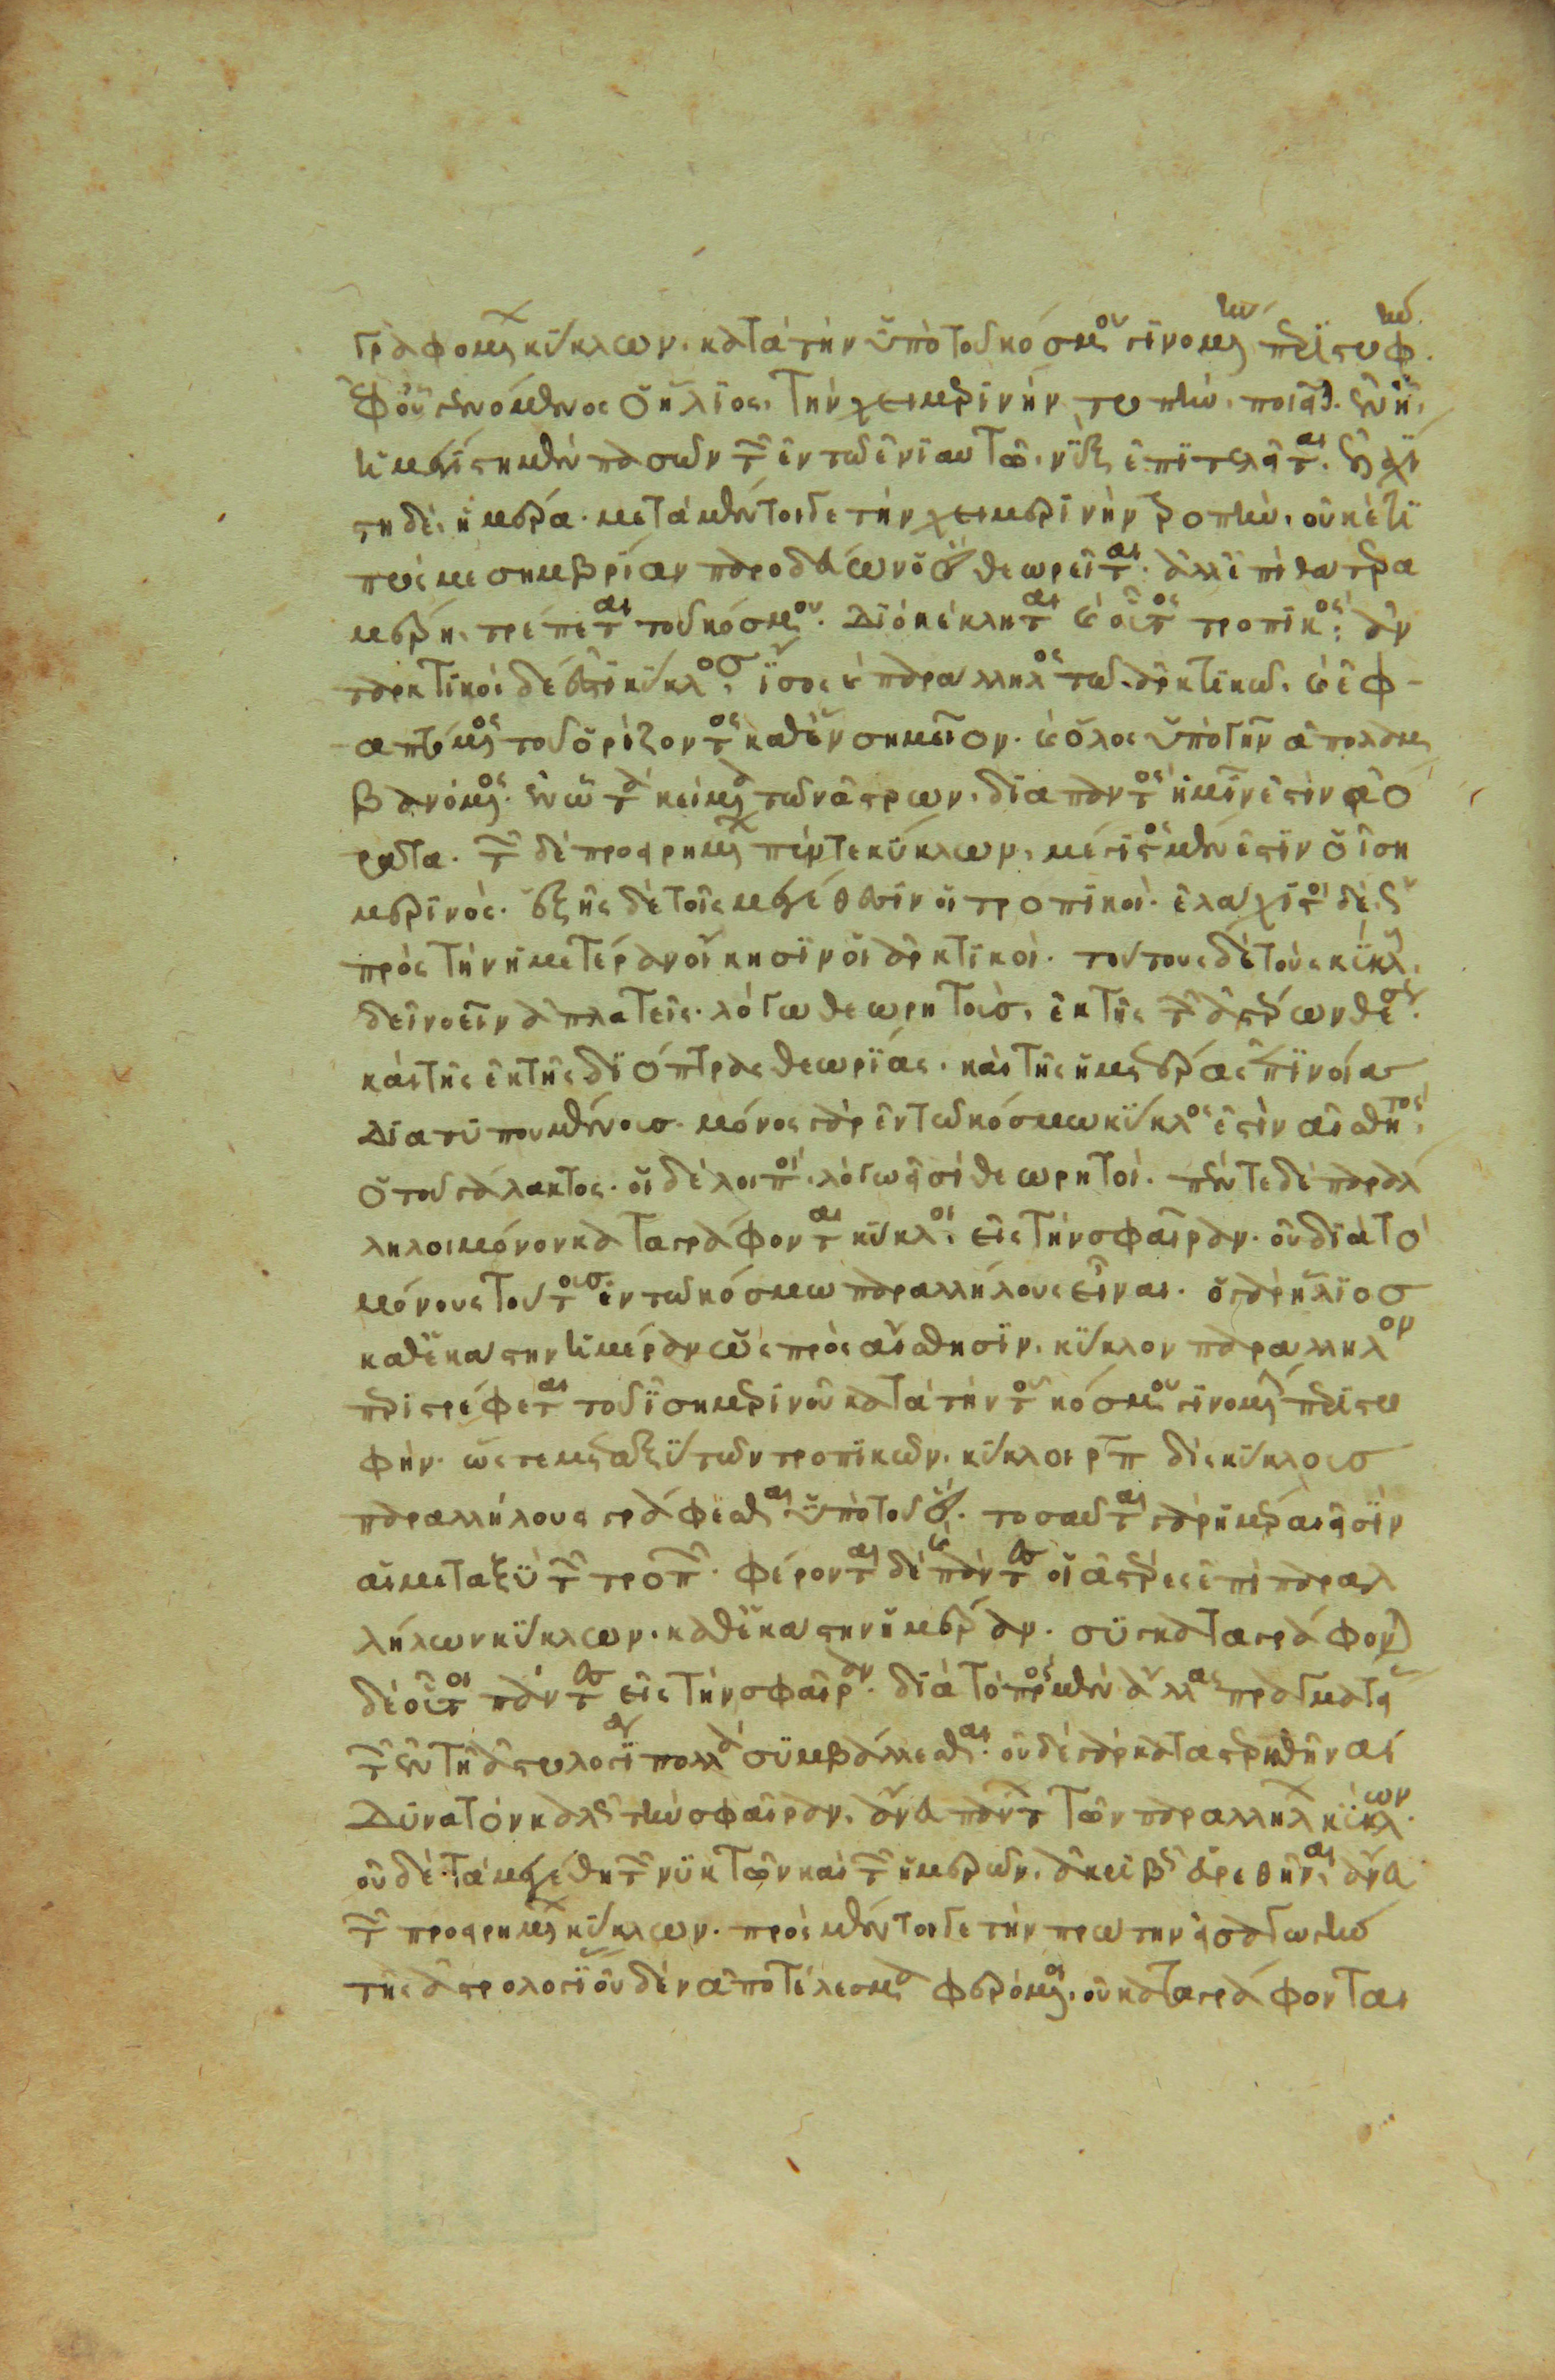 γραφομένων κύκλων. κατὰ τὴν ὑπὸ τοῦ κόσμου γινομένην περιστροφήν.
ἐφ' οὗ γενόμενος ὁ ἥλιος. τὴν χειμερινὴν τροπὴν. ποιεῖται. ἐν ἧ.
ἡ μεγίστη μὲν πασῶν τῶν ἐν τῶ ἐνιαυτῶ. νὺξ ἐπιτελεῖται. ἐλαχί
στη δὲ. ἡμέρα. μετὰ μέντοι γε τὴν χειμερινὴν τροπὴν. οὐκέτι
πρὸς μεσημβρίαν παροδεύων ὁ ἥλιος θεωρεῖται. ἀλλ' ἐπὶ θάτερα
μέρη. τρέπεται τοῦ κόσμου. διὸ κέκληται καὶ οὗτος τροπικός. ἀν
ταρκτικὸς δέ ἐστι κύκλος. ἴσος καὶ παράλληλος τῶ ἀρκτικῶ. καὶ ἐφ-
απτόμενος τοῦ ὁρίζοντος καθ' ἓν σημεῖον. καὶ ὅλος ὑπὸ γῆν ἀπολαμ
βανόμενος. ἐν ὧ τὰ κείμενα τῶν ἄστρων. διὰ παντὸς ἡμῖν ἐστιν ἀό
ρατα. τῶν δὲ προειρημένων πέντε κύκλων. μέγιστος μέν ἐστιν ὁ ἰση
μερινός. ἑξῆς δὲ τοῖς μεγέθεσιν οἱ τροπικοί. ἐλάχιστοι δὲ
πρὸς τὴν ἡμετέραν οἴκησιν οἱ ἀρκτικοί. τούτους δὲ τοὺς κύκλους
δεῖ νοεῖν ἀπλατεῖς. λόγω θεωρητοὺς. ἐκ τῆς τῶν ἀστέρων θέσεως.
καὶ τῆς ἐκ τῆς διόπτρας θεωρίας. καὶ τῆς ἡμετέρας ἐπινοίας
διατυπουμένους. μόνος γὰρ ἐν τῶ κόσμω κύκλος ἐστὶν αἰσθητὸς.
ὁ τοῦ γάλακτος. οἱ δὲ λοιποὶ. λόγω εἰσὶ θεωρητοί. πέντε δὲ παράλ
ληλοι μόνον καταγράφονται κύκλοι. εἰς τὴν σφαῖραν. οὐ διὰ τὸ
μόνους τούτους ἐν τῶ κόσμω παραλλήλους εἶναι. ὁ γὰρ ἥλιος
καθ' ἑκάστην ἡμέραν ὡς πρὸς αἴσθησιν. κύκλον παράλληλον
περιστρέφεται τοῦ ἰσημερινοῦ κατὰ τὴν τοῦ κόσμου γινομένην περιστρο
φήν. ὥστε μεταξὺ τῶν τροπικῶν. κύκλοι ρπ δὶς κύκλους
παραλλήλους γράφεσθαι ὑπὸ τοῦ ἡλίου. τοσαῦται γὰρ ἡμέραι εἰσὶν
αἱ μεταξὺ τῶν τροπῶν. φέρονται δὲ καὶ πάντες οἱ ἀστέρες ἐπὶ παραλ
λήλων κύκλων. καθ' ἑκάστην ἡμέραν. συγκαταγράφονται
δὲ οὗτοι πάντες εἰς τὴν σφαῖραν. διὰ τὸ πρὸς μὲν ἄλλας πραγματείας
τῶν ἐν τῆ ἀστρολογία πολλὰ συμβάλλεσθαι. οὐδὲ γὰρ καταστερισθῆναι
δυνατὸν καλῶς τὴν σφαῖραν. ἄνευ πάντων τῶν παραλλήλων κύκλων.
οὐδὲ τὰ μεγέθη τῶν νυκτῶν καὶ τῶν ἡμερῶν. ἀκριβῶς εὑρεθῆναι. ἄνευ
τῶν προειρημένων κύκλων. πρὸς μέντοι γε τὴν πρώτην εἰσαγωγὴν
τῆς ἀστρολογίας οὐδὲν ἀποτέλεσμα φερόμενοι. οὐ καταγράφονται